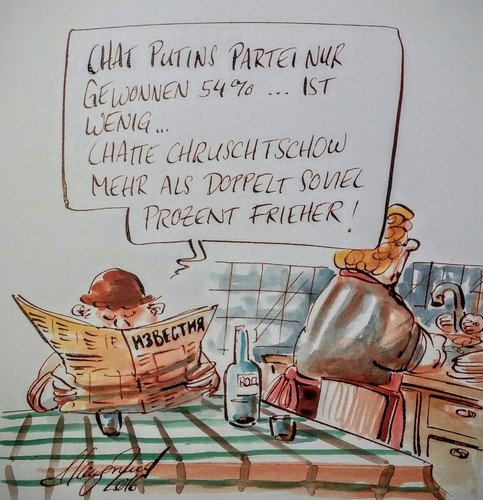 CHAT PUTINS PARTEI NUR
GEWONNEN 54% ... IST
WENIG...
CHATTE CHRUSCHTSCHOW
MEHR ALS DOPPELT SOVIEL
PROZENT FRIEHER!
ИЗВЕСТИЯ
2016